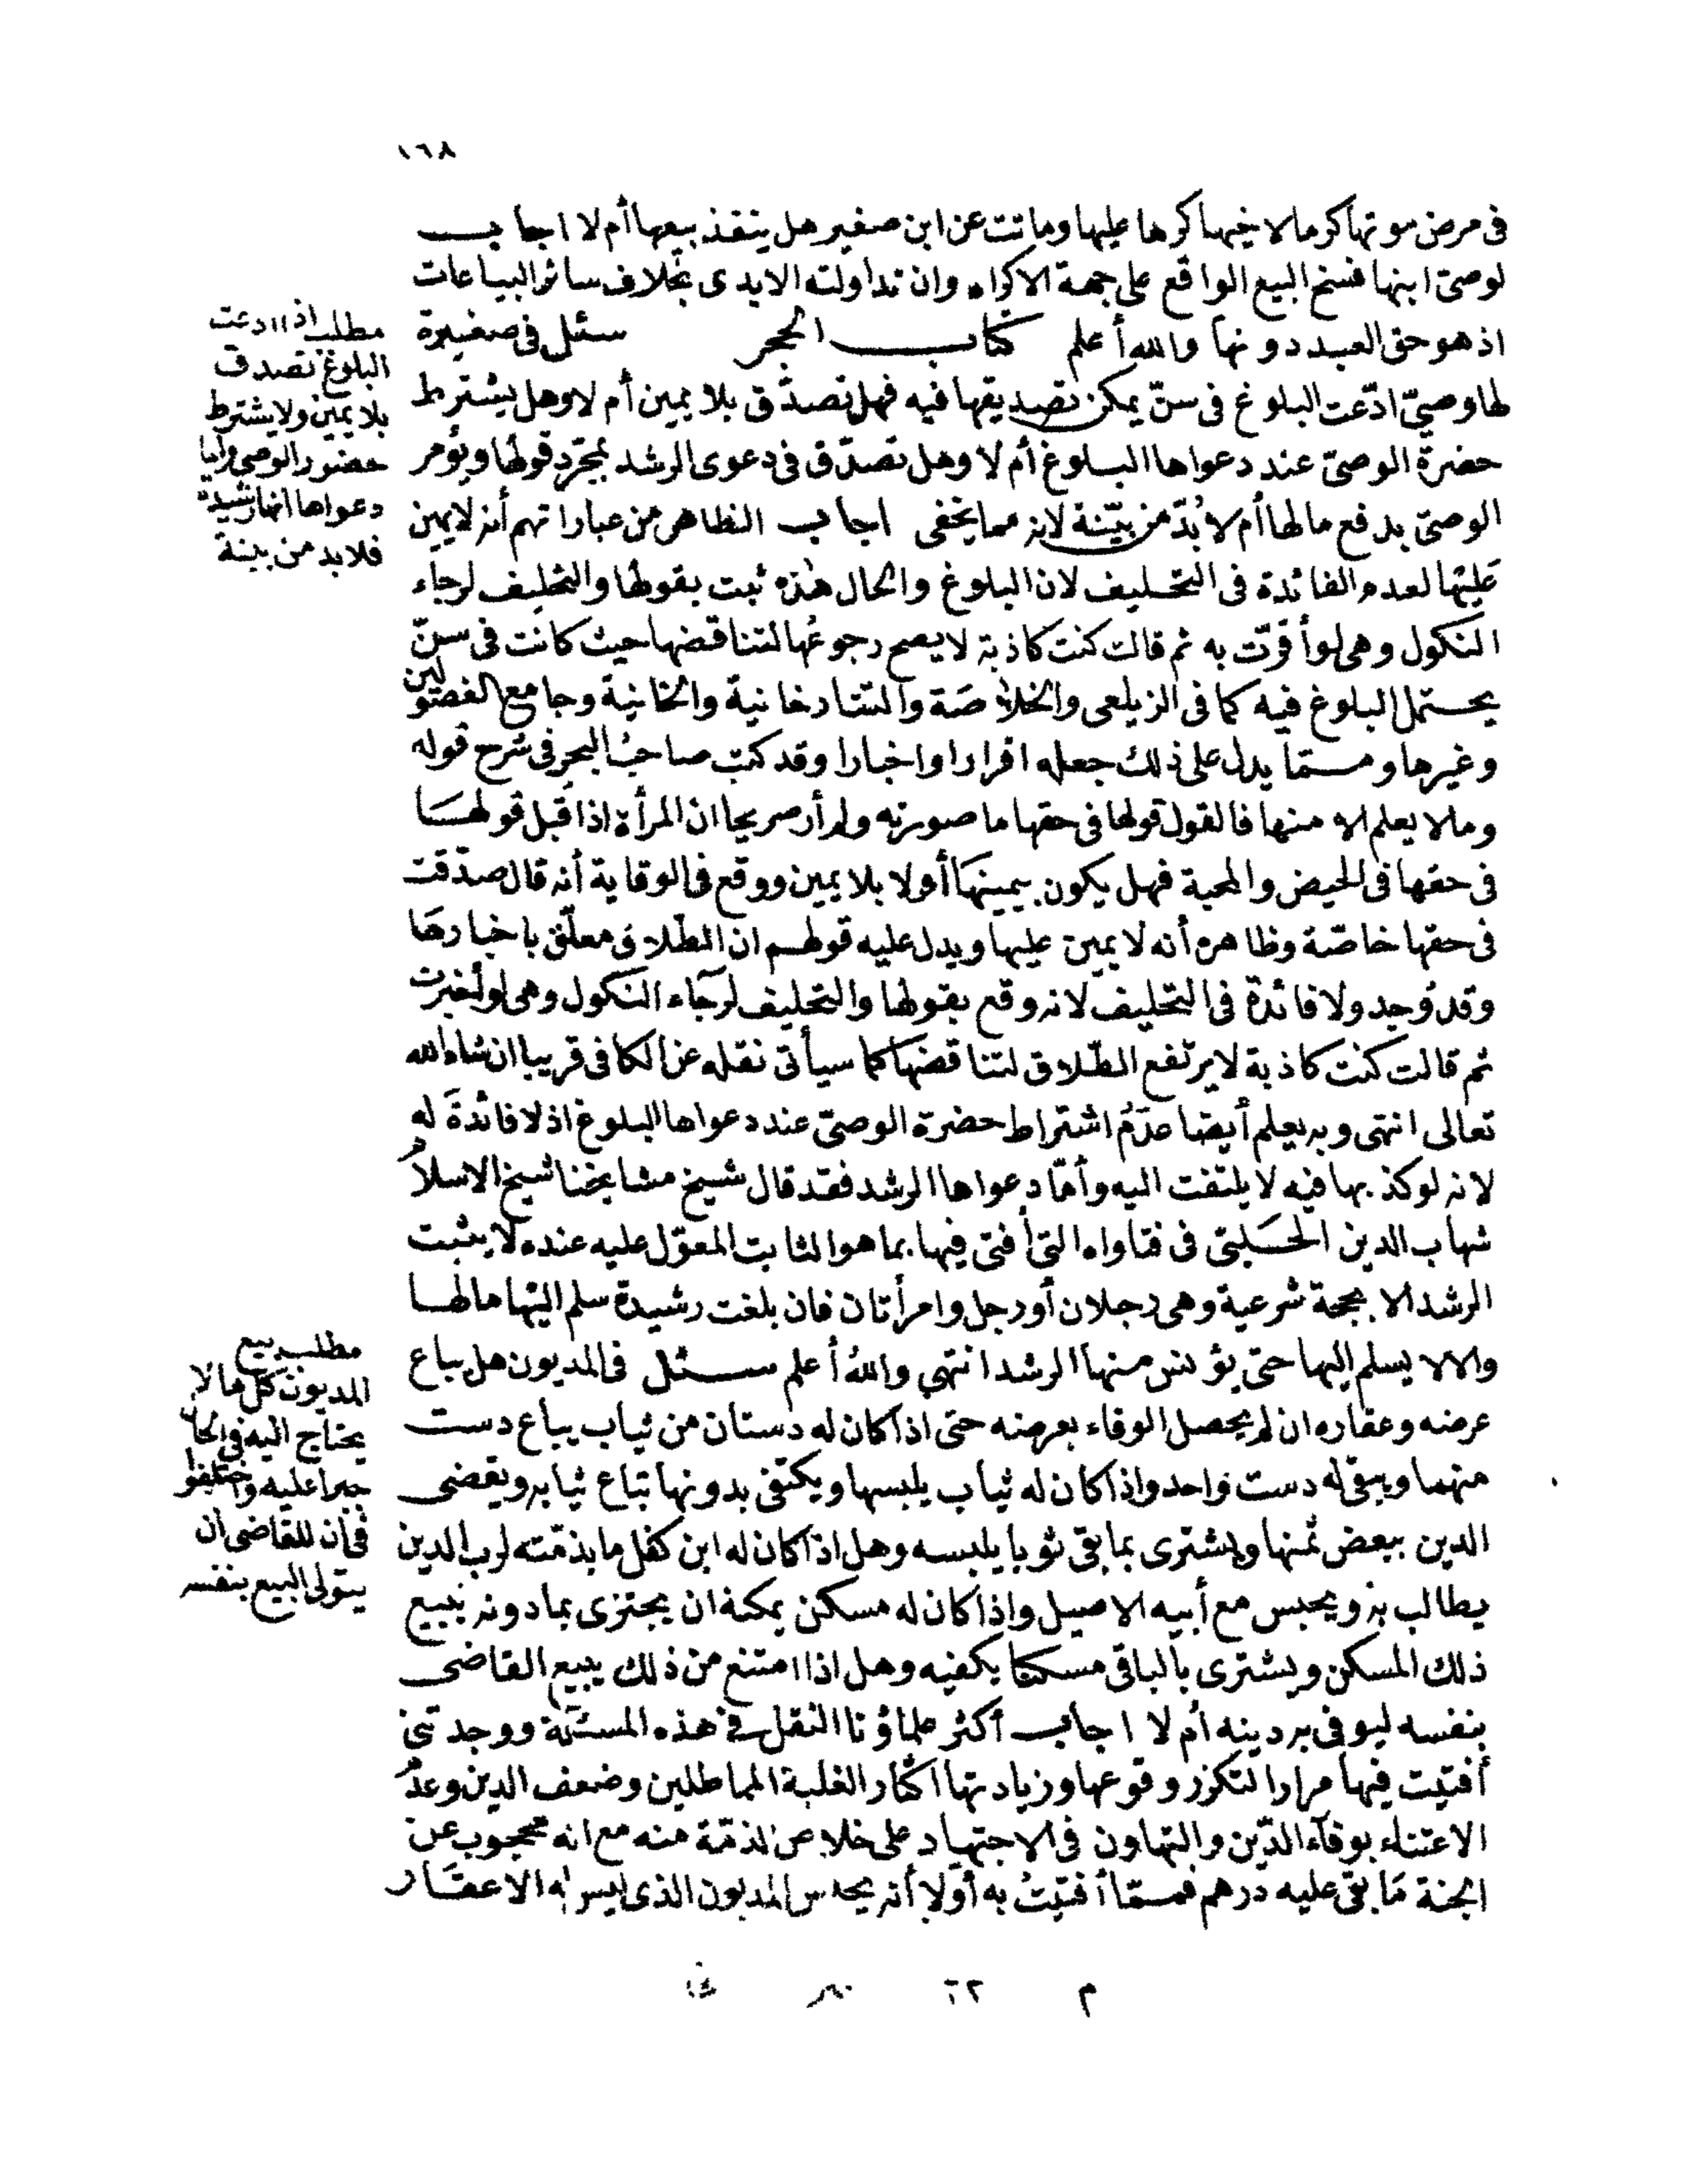 ١٦٨
فى مرض موتها كرما لاخيها كرها عليها وماتت عن ابن صغير هل ينفذ بيعها أم لا اجاب
لوصىّ ابنها فسخ البيع الواقع على جهة الاكراه وان تداولته الايدى بخلاف سائر البياعات
اذ هو حق العبد دونها والله أعلم كتاب الحجر سئل فى صغيرة
لها وصىّ ادّعت البلوغ فى سنّ يمكن تصديقها فيه فهل تصدّق بلا يمين أم لا وهل يشترط
حضرة الوصىّ عند دعواها البلوغ أم لا وهل تصدّق فى دعوى الرشد بمجرّد قولها ويؤمر
الوصىّ بدفع مالها أم لا بُدّ من بيّنة لانه مما يخفى اجاب الظاهر من عباراتهم أنه لا يمين
عليها لعدم الفائدة فى التحليف لان البلوغ والحال هذه ثبت بقولها والتحليف لرجاء
النكول وهى لو أقرّت به ثم قالت كنت كاذبة لا يصح رجوعها لتناقضها حيث كانت فى سنّ
يحتمل البلوغ فيه كما فى الزيلعى والخلاصة والتتارخانية والخانية وجامع الفصولين
وغيرها ومما يدل على ذلك جعله اقرارا واخبارا وقد كتب صاحب البحر فى شرح قوله
وما لا يعلم الا منها فالقول قولها فى حقها ما صورته ولم أر صريحا ان المرأة اذا قبل قولها
فى حقها فى الحيض والمحبة فهل يكون بيمينها أولا بلا يمين ووقع فى الوقاية أنه قال صدّقت
فى حقها خاصّة وظاهره أنه لا يمين عليها ويدل عليه قولهم ان الطّلاق معلّق باخبارها
وقد وُجد ولا فائدة فى التحليف لانه وقع بقولها والتحليف لرجاء النكول وهى لو أخبرت
ثم قالت كنت كاذبة لا يرتفع الطّلاق لتناقضها كما سيأتى نقله عن الكافى قريبا ان شاء الله
تعالى انتهى وبه يعلم أيضا عدَمُ اشتراط حضرة الوصىّ عند دعواها البلوغ اذ لا فائدة له
لانه لو كذبها فيه لا يلتفت اليه وأمّا دعواها الرشد فقد قال شيخ مشايخنا شيخ الاسلام
شهاب الدين الحلبىّ فى فتاواه التى أفتى فيها بما هو الثابت المعوّل عليه عنده لا يثبت
الرشد الا بحجة شرعية وهى رجلان أو رجل وامرأتان فان بلغت رشيدة سلم اليها مالها
والا لا يسلم اليها حتى يؤنس منها الرشد انتهى والله أعلم سئل فى المديون هل يباع
عرضه وعقاره ان لم يحصل الوفاء بعرضه حتى اذا كان له دستان من ثياب يباع دست
منهما ويبقى له دست واحد واذا كان له ثياب يلبسها ويكتفى بدونها تباع ثيابه ويقضى
الدين ببعض ثمنها ويشترى بما بقى ثوبا يلبسه وهل اذا كان له ابن كفل ما بذمّته لرب الدين
يطالب به ويحبس مع أبيه الاصيل واذا كان له مسكن يمكنه ان يجتزى بما دونه يبيع
ذلك المسكن ويشترى بالباقى مسكنا يكفيه وهل اذا امتنع من ذلك يبيع القاضى
بنفسه ليوفى به دينه أم لا اجاب أكثر علماؤنا النقل فى هذه المسئلة ووجدتنى
أفتيت فيها مرارا لتكرر وقوعها وزيادتها اكثارا لغلبة المماطلين وضعف الدين وعدم
الاعتناء بوفاء الدّين والتهاون فى الاجتهاد على خلاص الذمّة منه مع انه محجوب عن
الجنة ما بقى عليه درهم فمما أفتيتُ به أوّلا أنه يحبس المديون الذى ليس له الا عقار
مطلب اذا ادعت
البلوغ تصدق
بلا يمين ولا يشترط
حضور الوصى وأما
دعواها انها رشيدة
فلابد من بينة
مطلب يبيع
المديون كل ما لا
يحتاج اليه فى الحال
جبرا عليه واختلفوا
فى ان للقاضى ان
يتولى البيع بنفسه
م ٢٢